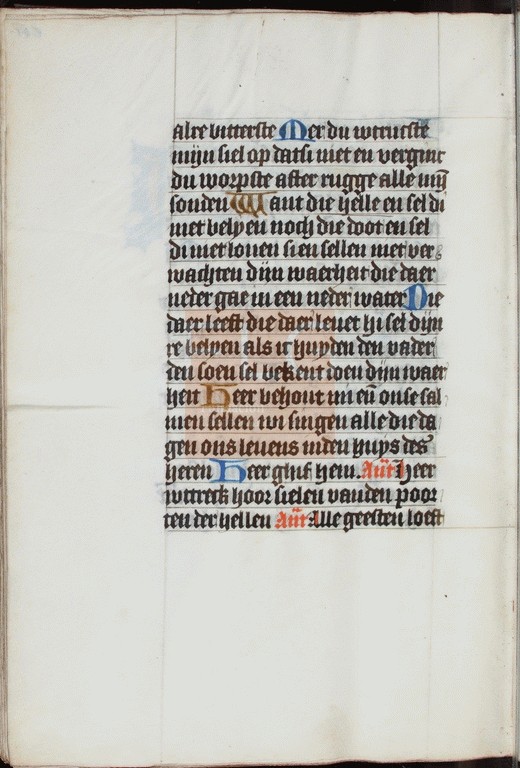 alre bitterste Mer du wtructe
mijn siel op datsi niet en verginc
du worpste after rugge alle mijn̄
sonden Want die helle en sel di
niet belyen noch die doot en sel
di niet louen si en sellen niet ver
wachten dijn waerheit die daer
neder gae in een neder water Die
daer leeft die daer leuet hi sel dijn
re belyen als ic huyden den vader
den soen sel bekent doen dijn waer
heit Heer behout mi en̄ onse sal
men sellen wi singen alle die da
gen ons leuens inden huys des
heren Heer ghif hem. Ant̄ Heer
wttreck hoor sielen vanden poor
ten der hellen Ant̄ Alle geesten loeft